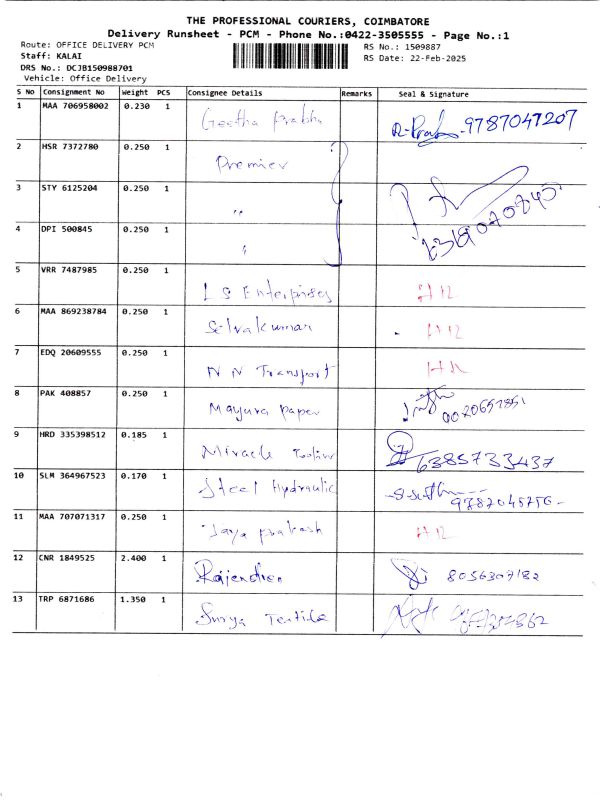 THE PROFESSIONAL COURIERS, COIMBATORE
Delivery Runsheet - PCM - Phone No.:0422-3505555 - Page No.:1
Route: OFFICE DELIVERY PCM RS No.: 1509887
Staff: KALAI RS Date: 22-Feb-2025
DRS No.: DCJB150988701
Vehicle: Office Delivery
S No Consignment No Weight PCS Consignee Details Remarks Seal & Signature
1 MAA 706958002 0.230 1 Geetha Prabhu 9787047207
2 HSR 7372780 0.250 1 Premier
3 STY 6125204 0.250 1 "
4 DPI 500845 0.250 1 "
5 VRR 7487985 0.250 1 LS Enterprises
6 MAA 869238784 0.250 1 Selvakumar
7 EDQ 20609555 0.250 1 N N Transport
8 PAK 408857 0.250 1 Mayura paper
9 HRD 335398512 0.185 1 Miracle 6385733437
10 SLM 364967523 0.170 1 Steel Hydraulic
11 MAA 707071317 0.250 1 Jaya prakash
12 CNR 1849525 2.400 1 Rajendren 8056307182
13 TRP 6871686 1.350 1 Surya Textile